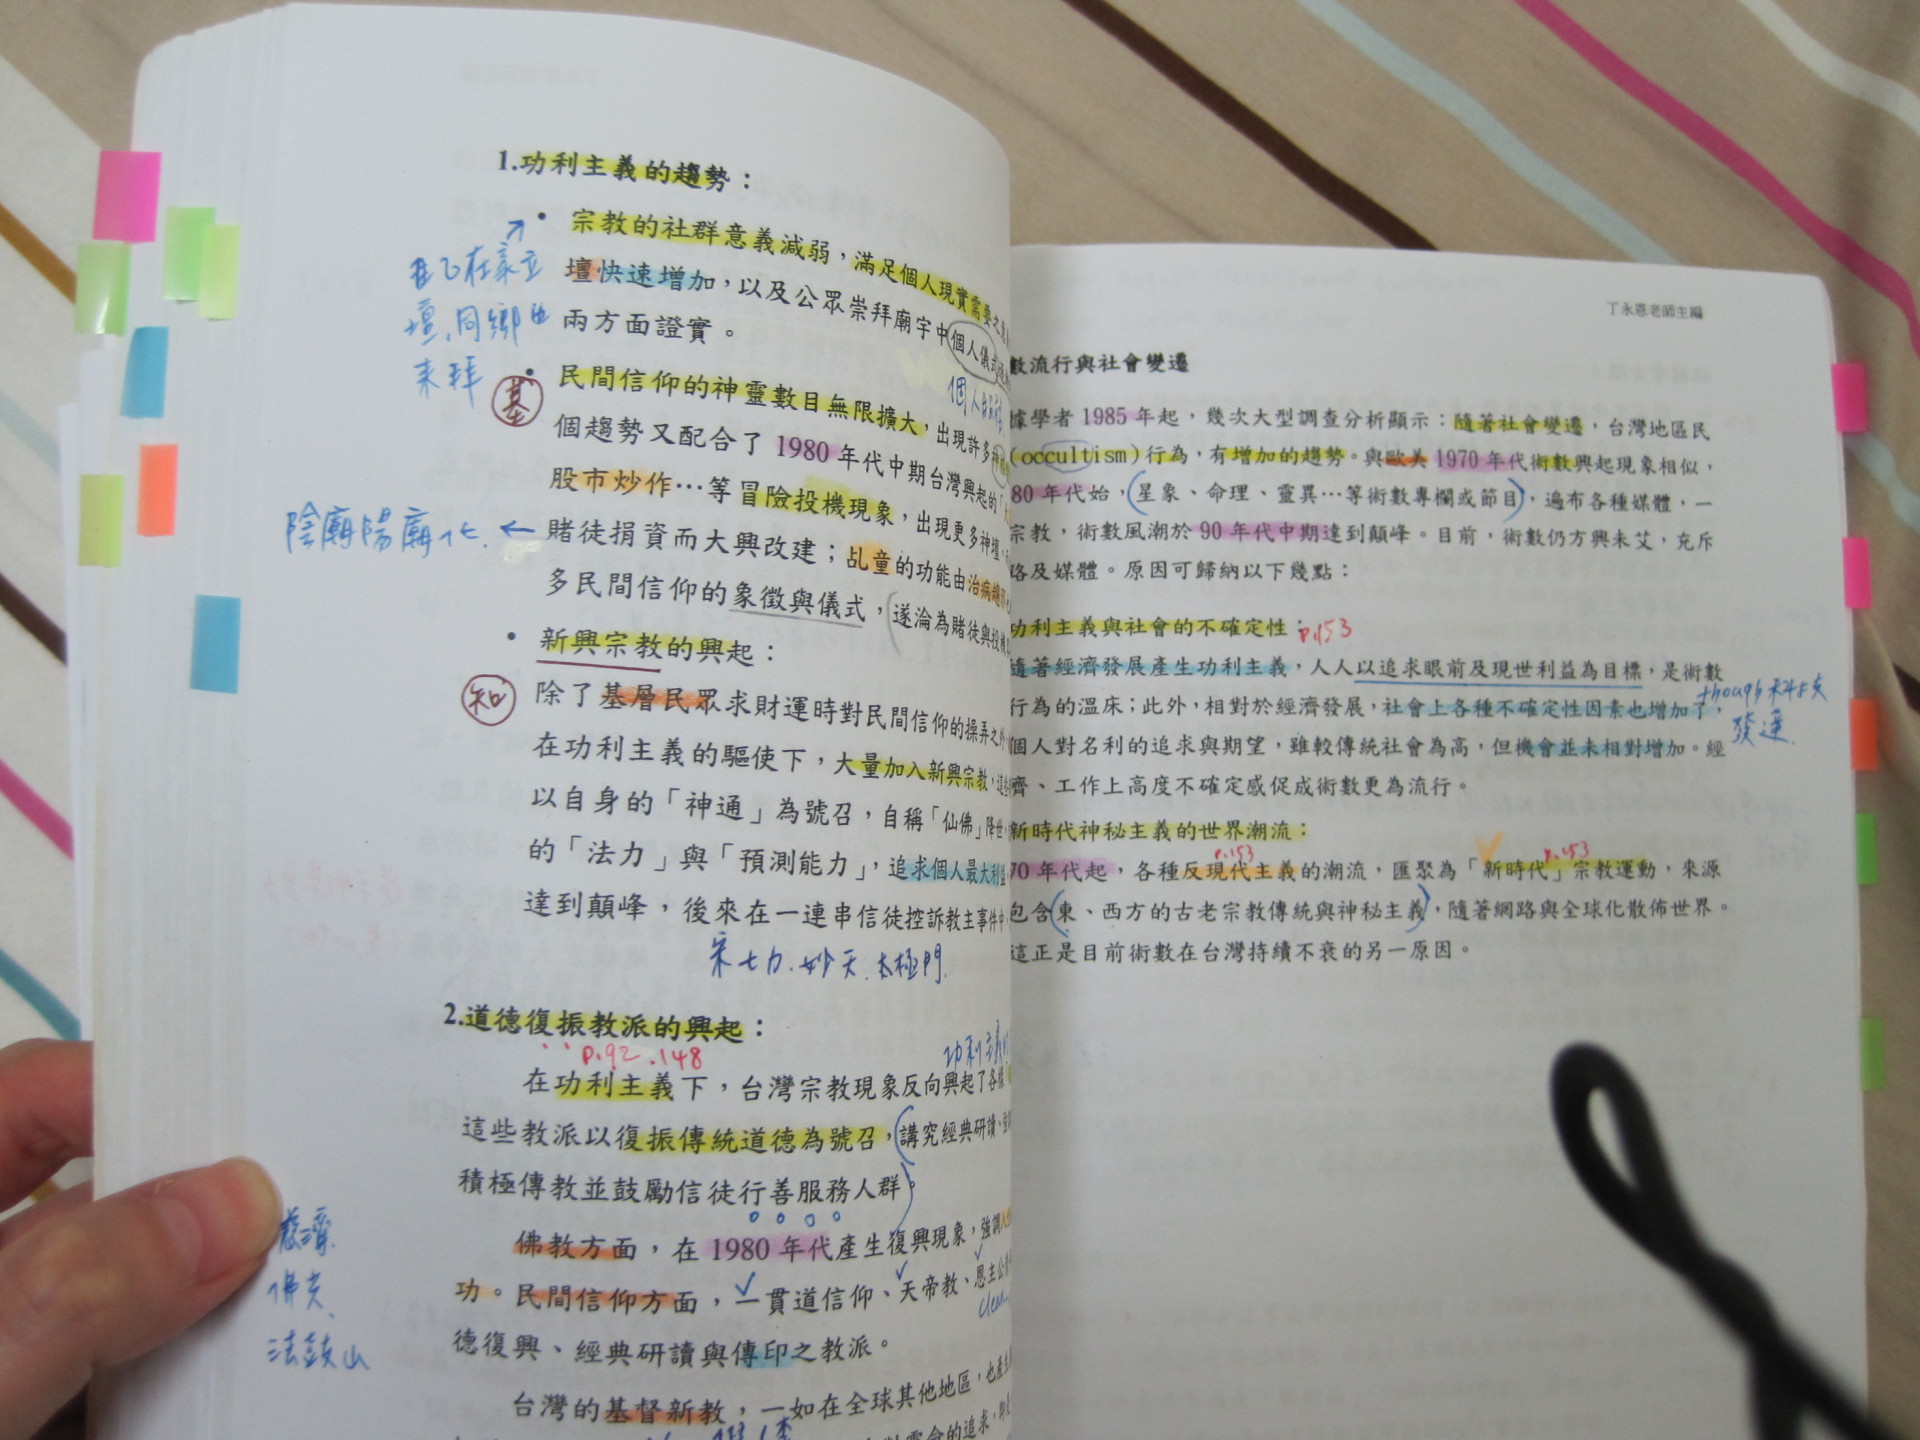 1.功利主義的趨勢：
• 宗教的社群意義減弱，滿足個人現實需要之
壇快速增加，以及公眾崇拜廟宇中個人儀式
兩方面證實。
在家立
壇,同鄉
來拜
個人
基
• 民間信仰的神靈數目無限擴大，出現許多神
個趨勢又配合了 1980 年代中期台灣興起的「
股市炒作…等冒險投機現象，出現更多神壇，
陰廟陽廟化. ←
賭徒捐資而大興改建；乩童的功能由治病趨
多民間信仰的象徵與儀式，遂淪為賭徒與投機
• 新興宗教的興起：
知
除了基層民眾求財運時對民間信仰的操弄之外
在功利主義的驅使下，大量加入新興宗教，這些
以自身的「神通」為號召，自稱「仙佛」降世，
的「法力」與「預測能力」，追求個人最大利益
達到顛峰，後來在一連串信徒控訴教主事件中
宋七力.妙天.太極門.
2.道德復振教派的興起：
p.92 .148
功利主義
在功利主義下，台灣宗教現象反向興起了各樣
這些教派以復振傳統道德為號召，(講究經典研讀、
積極傳教並鼓勵信徒行善服務人群)。
慈濟.
佛光.
法鼓山
佛教方面，在 1980 年代產生復興現象，強調
功。民間信仰方面，一貫道信仰、天帝教、恩主公
德復興、經典研讀與傳印之教派。
台灣的基督新教，一如在全球其他地區，也產生
靈命的追求，
丁永恩老師主編
數流行與社會變遷
據學者 1985 年起，幾次大型調查分析顯示：隨著社會變遷，台灣地區民
(occultism)行為，有增加的趨勢。與歐美 1970 年代術數興起現象相似，
80 年代始，(星象、命理、靈異…等術數專欄或節目)，遍布各種媒體，一
宗教，術數風潮於 90 年代中期達到顛峰。目前，術數仍方興未艾，充斥
路及媒體。原因可歸納以下幾點：
功利主義與社會的不確定性：p.153
隨著經濟發展產生功利主義，人人以追求眼前及現世利益為目標，是術數
though 科技
發達.
行為的溫床；此外，相對於經濟發展，社會上各種不確定性因素也增加了，
個人對名利的追求與期望，雖較傳統社會為高，但機會並未相對增加。經
濟、工作上高度不確定感促成術數更為流行。
新時代神秘主義的世界潮流：
p.153 p.153
70 年代起，各種反現代主義的潮流，匯聚為「新時代」宗教運動，來源
包含(東、西方的古老宗教傳統與神秘主義)，隨著網路與全球化散佈世界。
這正是目前術數在台灣持續不衰的另一原因。